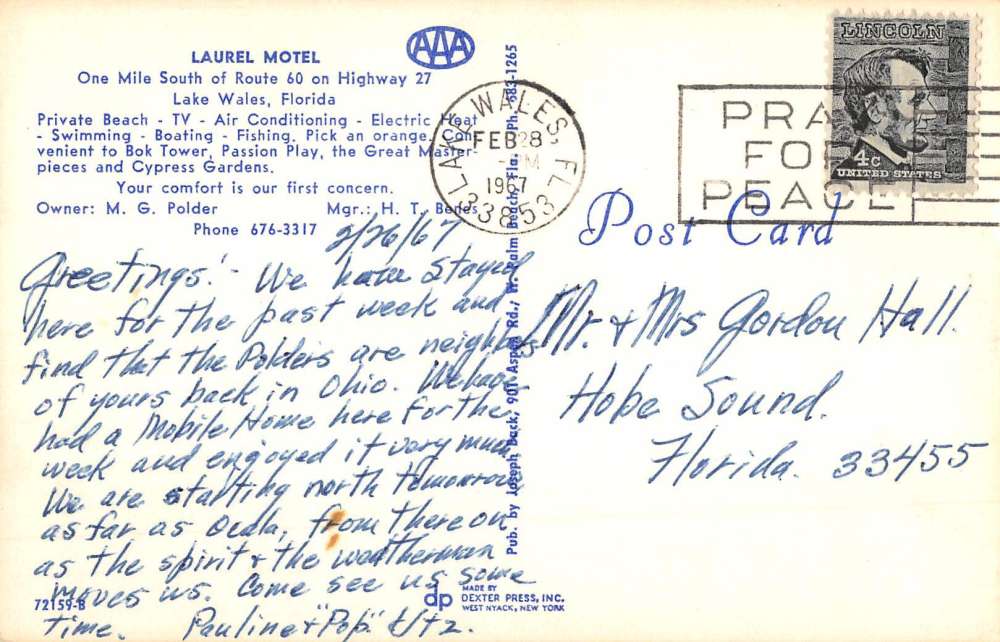 LAUREL MOTEL
One Mile South of Route 60 on Highway 27
Lake Wales, Florida
Private Beach - TV - Air Conditioning - Electric Heat
- Swimming - Boating - Fishing. Pick an orange. Con-
venient to Bok Tower, Passion Play, the Great Master-
pieces and Cypress Gardens.
Your comfort is our first concern.
Owner: M. G. Polder Mgr.: H. T. Benes
Phone 676-3317
AAA
LAKE WALES, FL
FEB 28
PM
1967
33853
PRAY
FOR
PEACE
LINCOLN
4c
UNITED STATES
Post Card
2/26/67
Greetings! - We have stayed
here for the past week and
find that the Polders are neighbors
of yours back in Ohio. We have
had a Mobile Home here for the
week and enjoyed it very much
We are starting north tomorrow
as far as Ocala, from there on
as the spirit & the weatherman
moves us. Come see us some
time. Pauline & "Pop" Utz.
Mr. & Mrs Gordon Hall.
Hobe Sound.
Florida. 33455
Pub. by Joseph Back, 901 Aspen Rd., W. Palm Beach, Fla. Ph. 683-1265
72159-B
dp
MADE BY
DEXTER PRESS, INC.
WEST NYACK, NEW YORK